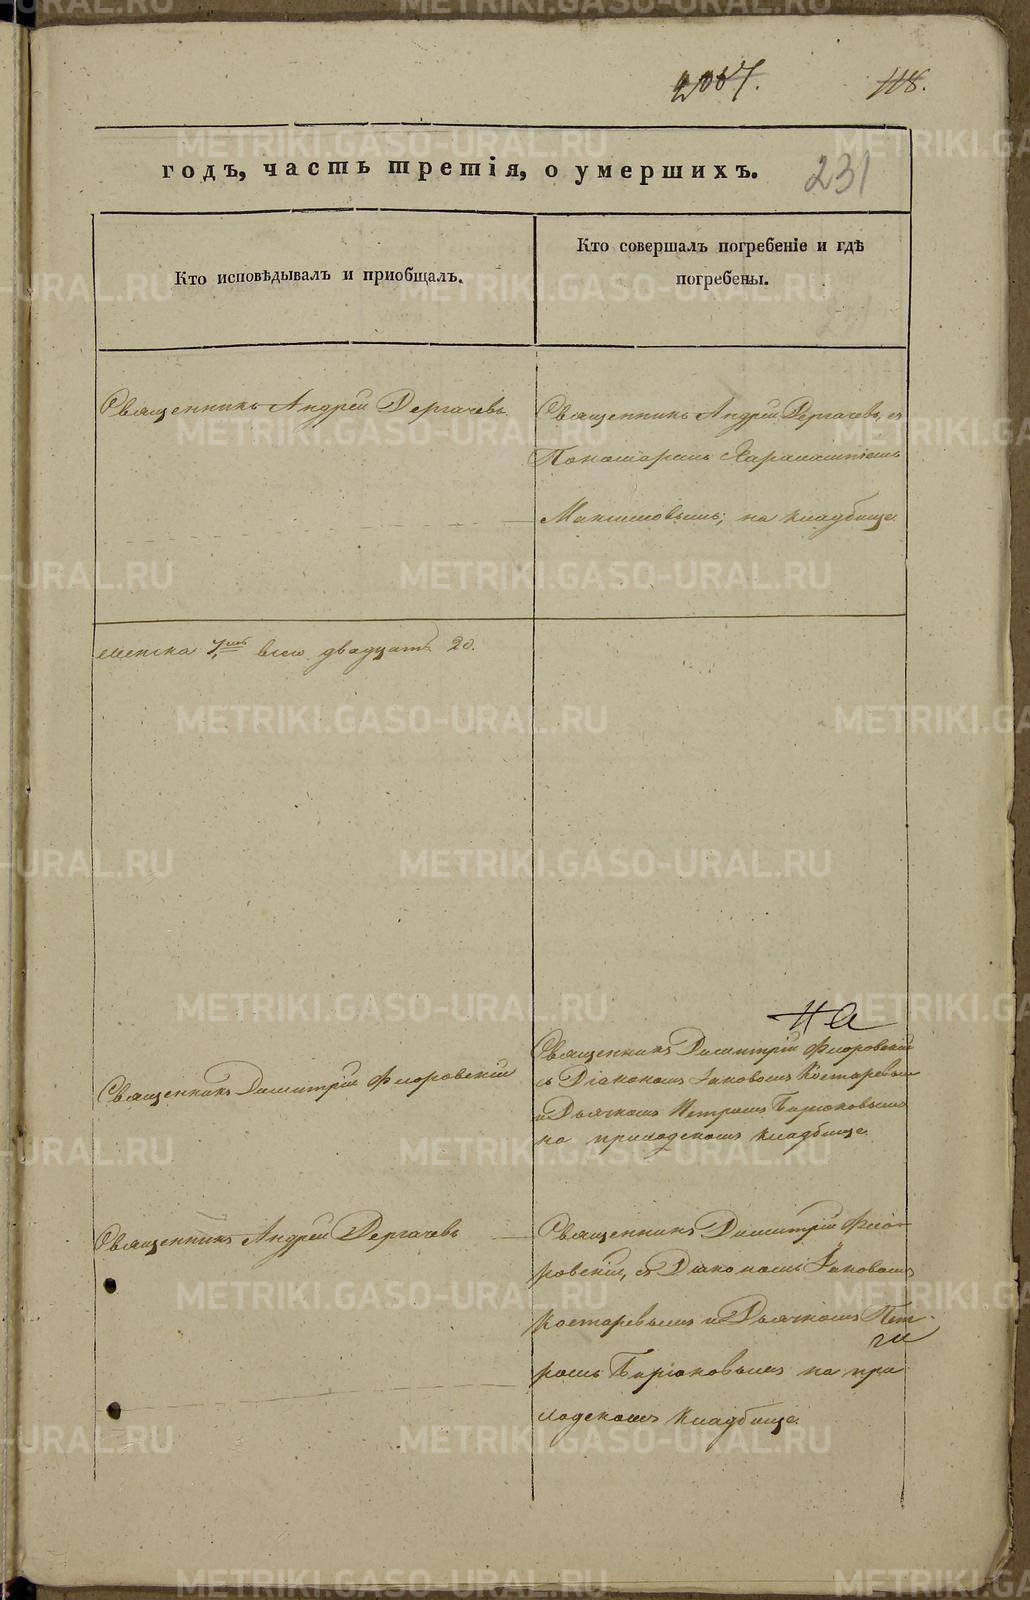 2007. 118.
годъ, часть третія, о умершихъ. 231
Кто исповѣдывалъ и пріобщалъ.
Кто совершалъ погребеніе и гдѣ
погребены.
Священникъ Андрей Дергачевъ
Священникъ Андрей Дергачевъ, съ
Пономаремъ Харалампіемъ
Максимовымъ; на кладбище
женска 7. всего двадцать 20.
Священникъ Димитрій Флоровскій
на
Священникъ Димитрій Флоровскій
съ Діакономъ Іаковомъ Костаревым
и Дьячкомъ Петромъ Бирюковымъ
на приходскомъ кладбище.
Священникъ Андрей Дергачевъ
Священникъ Димитрій Фло-
ровскій, съ Діакономъ Іаковомъ
Костаревымъ и Дьячкомъ Пет-
ромъ Бирюковымъ на при
ходскомъ кладбище.
METRIKI.GASO-URAL.RU